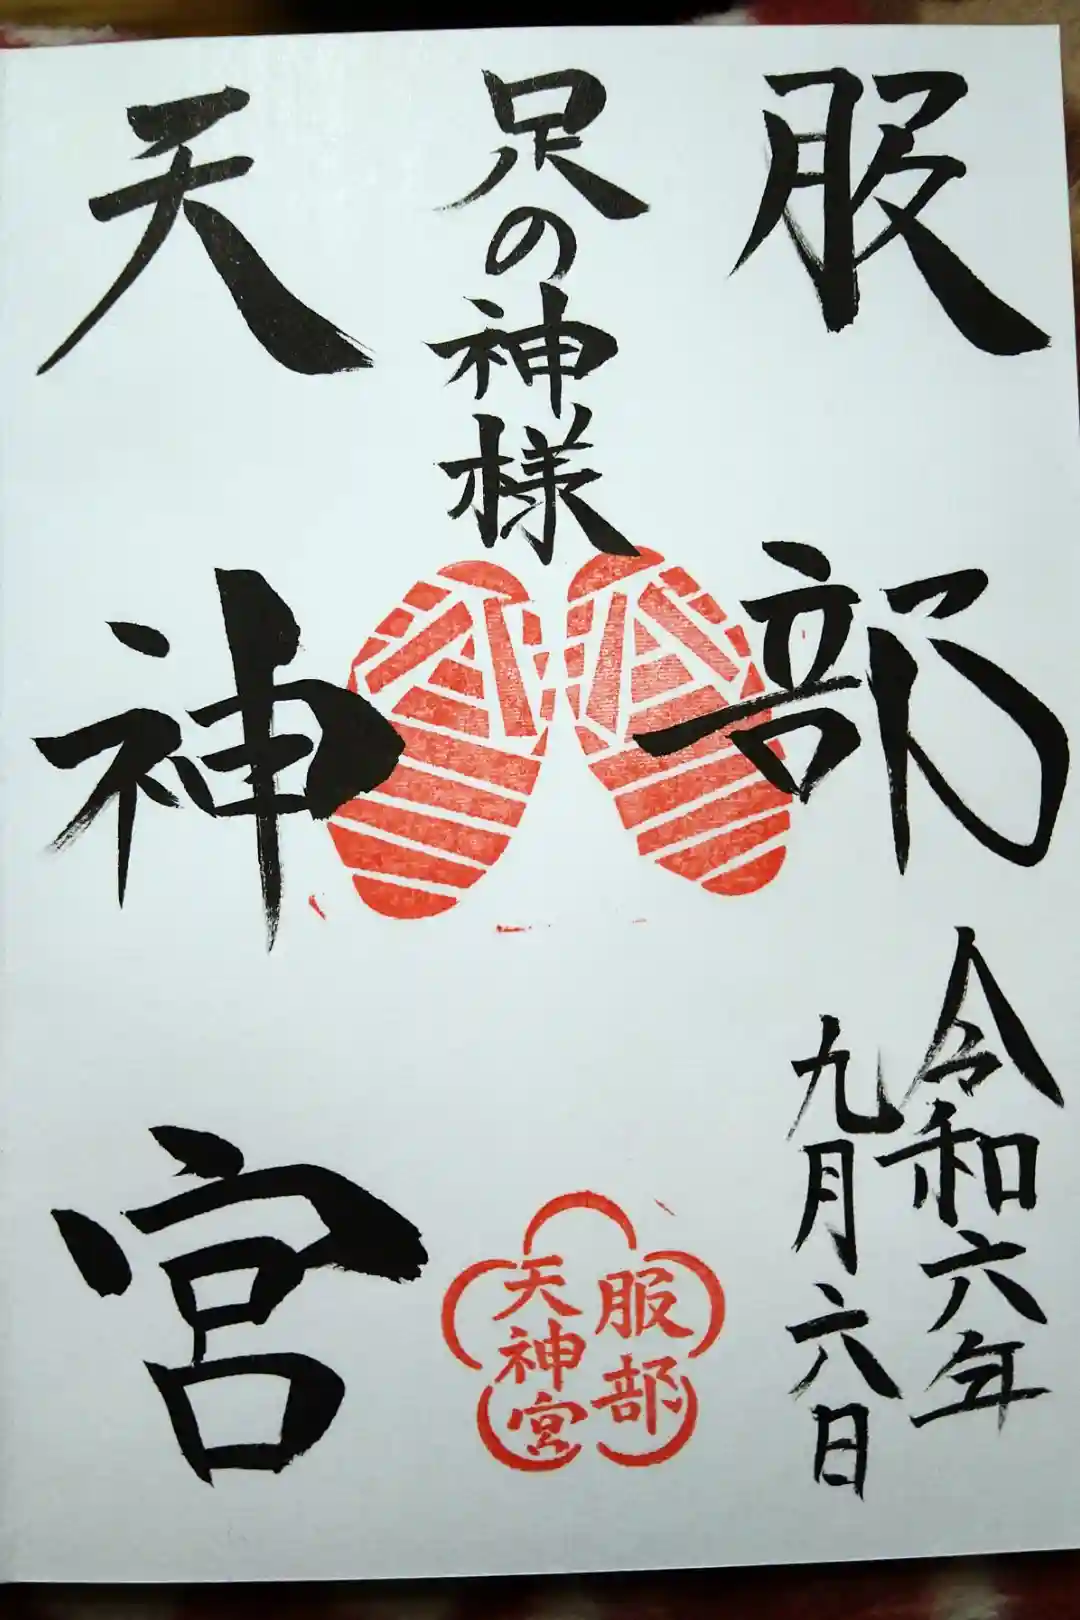 服部
令和六年
九月六日
足の神様
天神宮
服部
天神宮